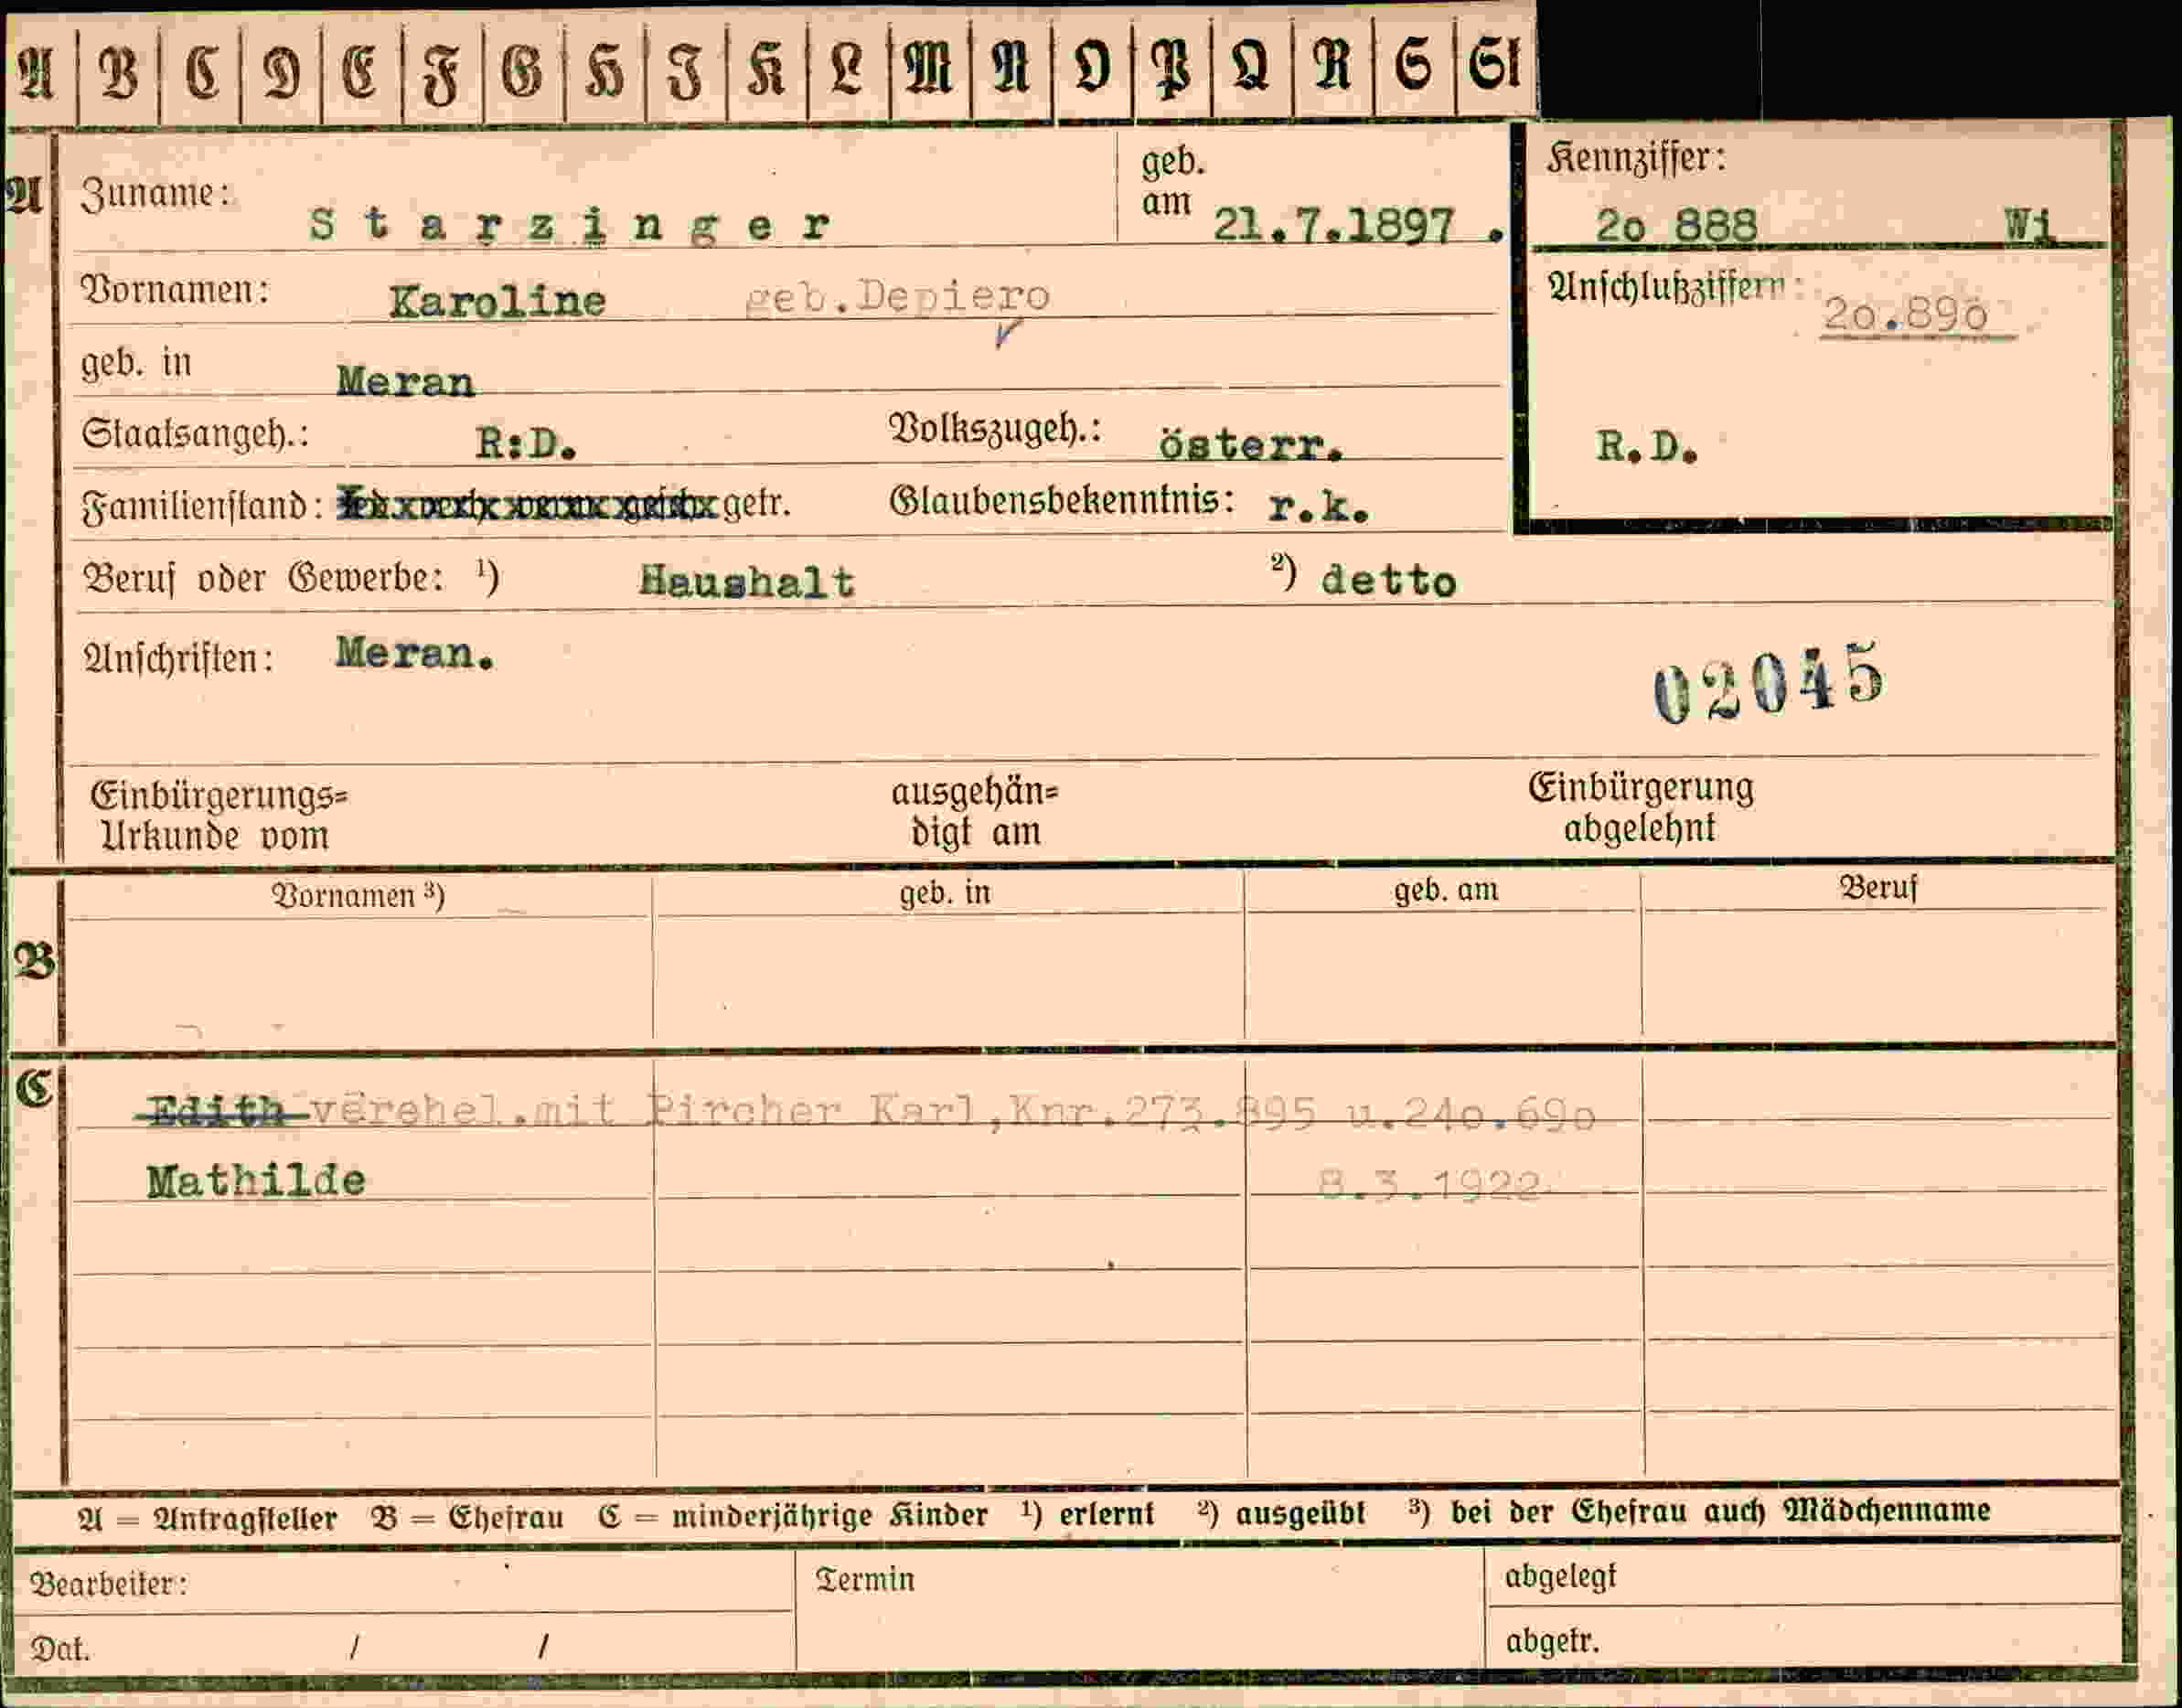 A B C D E F G H J K L M N O P Q R S St
A Zuname: Starzinger geb. am 21.7.1897. Kennziffer: 2o 888 Wi
Vornamen: Karoline geb.Depiero Anschlußziffern: 2o.89o
geb. in Meran
Staatsangeh.: R:D. Volkszugeh.: österr. R.D.
Familienstand: getr. Glaubensbekenntnis: r.k.
Beruf oder Gewerbe: ¹) Haushalt ²) detto
Anschriften: Meran.
02045
Einbürgerungs= ausgehän= Einbürgerung
Urkunde vom digt am abgelehnt
Vornamen ³) geb. in geb. am Beruf
B
C
Edith verehel.mit Pircher Karl,Knr.273.895 u.24o.69o
Mathilde 8.3.1922
A = Antragsteller B = Ehefrau C = minderjährige Kinder ¹) erlernt ²) ausgeübt ³) bei der Ehefrau auch Mädchenname
Bearbeiter: Termin abgelegt
Dat. / / abgetr.